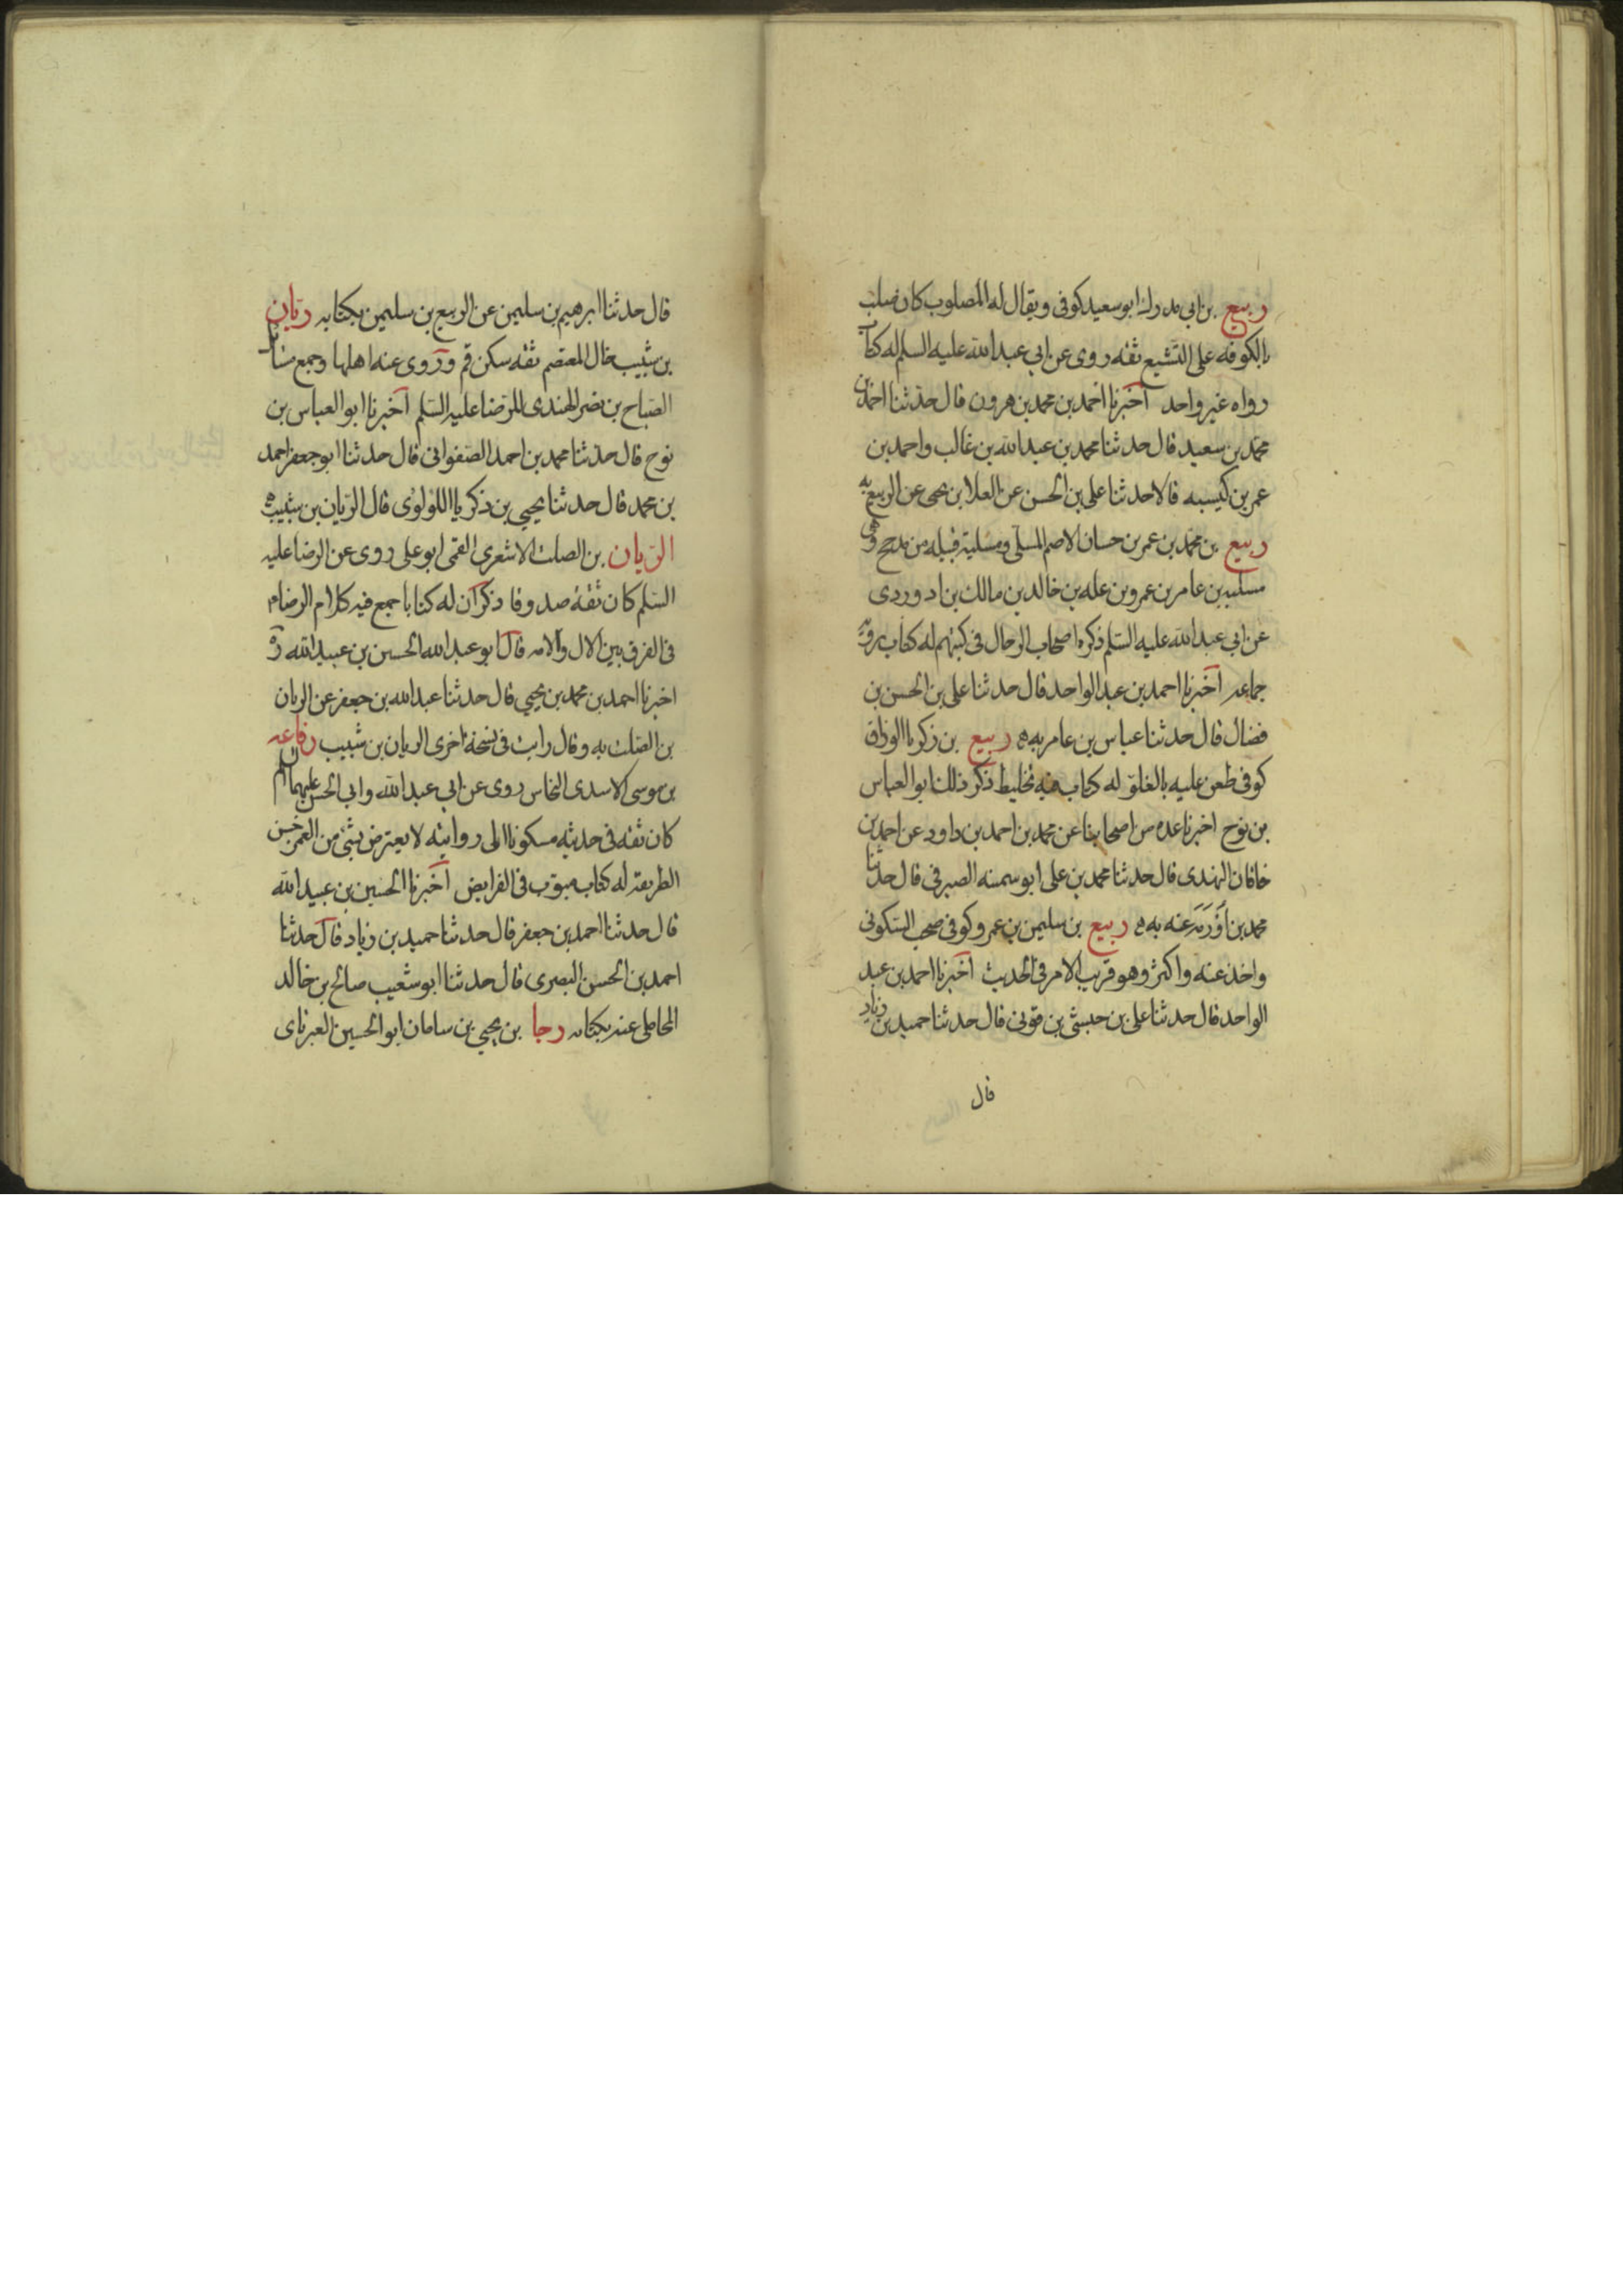 ربيع بن ابي مدرك ابو سعيد كوفى ويقال له المصلوب كان صلب
بالكوفه على التشيع ثقه روى عن ابى عبد الله عليه السلم له كتاب
رواه غير واحد اخبرنا احمد بن محمد بن هرون قال حدثنا احمد بن
محمد بن سعيد قال حدثنا محمد بن عبد الله بن غالب واحمد بن
عمر بن كيسبه قالا حدثنا على بن الحسن عن العلا بن يحيى عن الربيع به
ربيع بن محمد بن عمر بن حسان الاصم المسلى ومسلية قبيله من مذحج وهى
مسليه بن عامر بن عمرو بن عله بن خالد بن مالك بن اد وروى
عن ابي عبد الله عليه السلم ذكره اصحاب الرجال فى كتبهم له كتاب يرويه
جماعه اخبرنا احمد بن عبد الواحد قال حدثنا على بن الحسن بن
فضال قال حدثنا عباس بن عامر به ه ربيع بن زكريا الوراق
كوفى طعن عليه بالغلو له كتاب فيه تخليط ذكر ذلك ابو العباس
بن نوح اخبرنا عده من اصحابنا عن محمد بن احمد بن داود عن احمد بن
خاقان النهدى قال حدثنا محمد بن على ابو سمينه الصيرفى قال حدثنا
محمد بن اورمه عنه به ه ربيع بن سليمن بن عمرو كوفى صحب السكونى
واخذ عنه واكثر وهو قريب الامر فى الحديث اخبرنا احمد بن عبد
الواحد قال حدثنا على بن حبشى بن قونى قال حدثنا حميد بن زياد
قال
قال حدثنا ابرهيم بن سليمن عن الربيع بن سليمن بكتابه ريان
بن شبيب خال المعتصم ثقه سكن قم وروى عنه اهلها وجمع مسائل
الصباح بن نصر الهندى للرضا عليه السلم اخبرنا ابو العباس بن
نوح قال حدثنا محمد بن احمد الصفوانى قال حدثنا ابو جعفر احمد
بن محمد قال حدثنا يحيى بن زكريا اللولوى قال الريان بن شبيب به
الريان بن الصلت الاشعرى القمى ابو على روى عن الرضا عليه
السلم كان ثقة صدوقا ذكر ان له كتابا جمع فيه كلام الرضا م
فى الفرق بين الال والامه قال ابو عبد الله الحسين بن عبيد الله ره
اخبرنا احمد بن محمد بن يحيى قال حدثنا عبد الله بن جعفر عن الريان
بن الصلت به وقال رايت فى نسخة اخرى الريان بن شبيب رفاعه
بن موسى الاسدى النخاس روى عن ابى عبد الله وابى الحسن عليهما السلم
كان ثقه فى حديثه مسكونا الى روايته لا يعترض بشئ من الغمز حسن
الطريقه له كتاب مبوب فى الفرايض اخبرنا الحسين بن عبيد الله
قال حدثنا احمد بن جعفر قال حدثنا حميد بن زياد قال حدثنا
احمد بن الحسن البصرى قال حدثنا ابو شعيب صالح بن خالد
المحاملى عنه بكتابه رجا بن يحيى بن سامان ابو الحسين العبرتاى